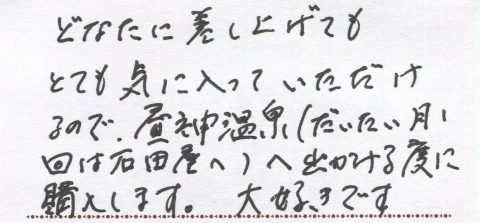 どなたに差し上げても
とても気に入っていただけ
るので、昼神温泉(だいたい月1
回は石田屋へ)へ出かける度に
購入します。 大好きです